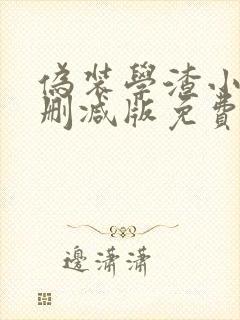 偽裝學渣小
刪減版免費
邊瀟瀟